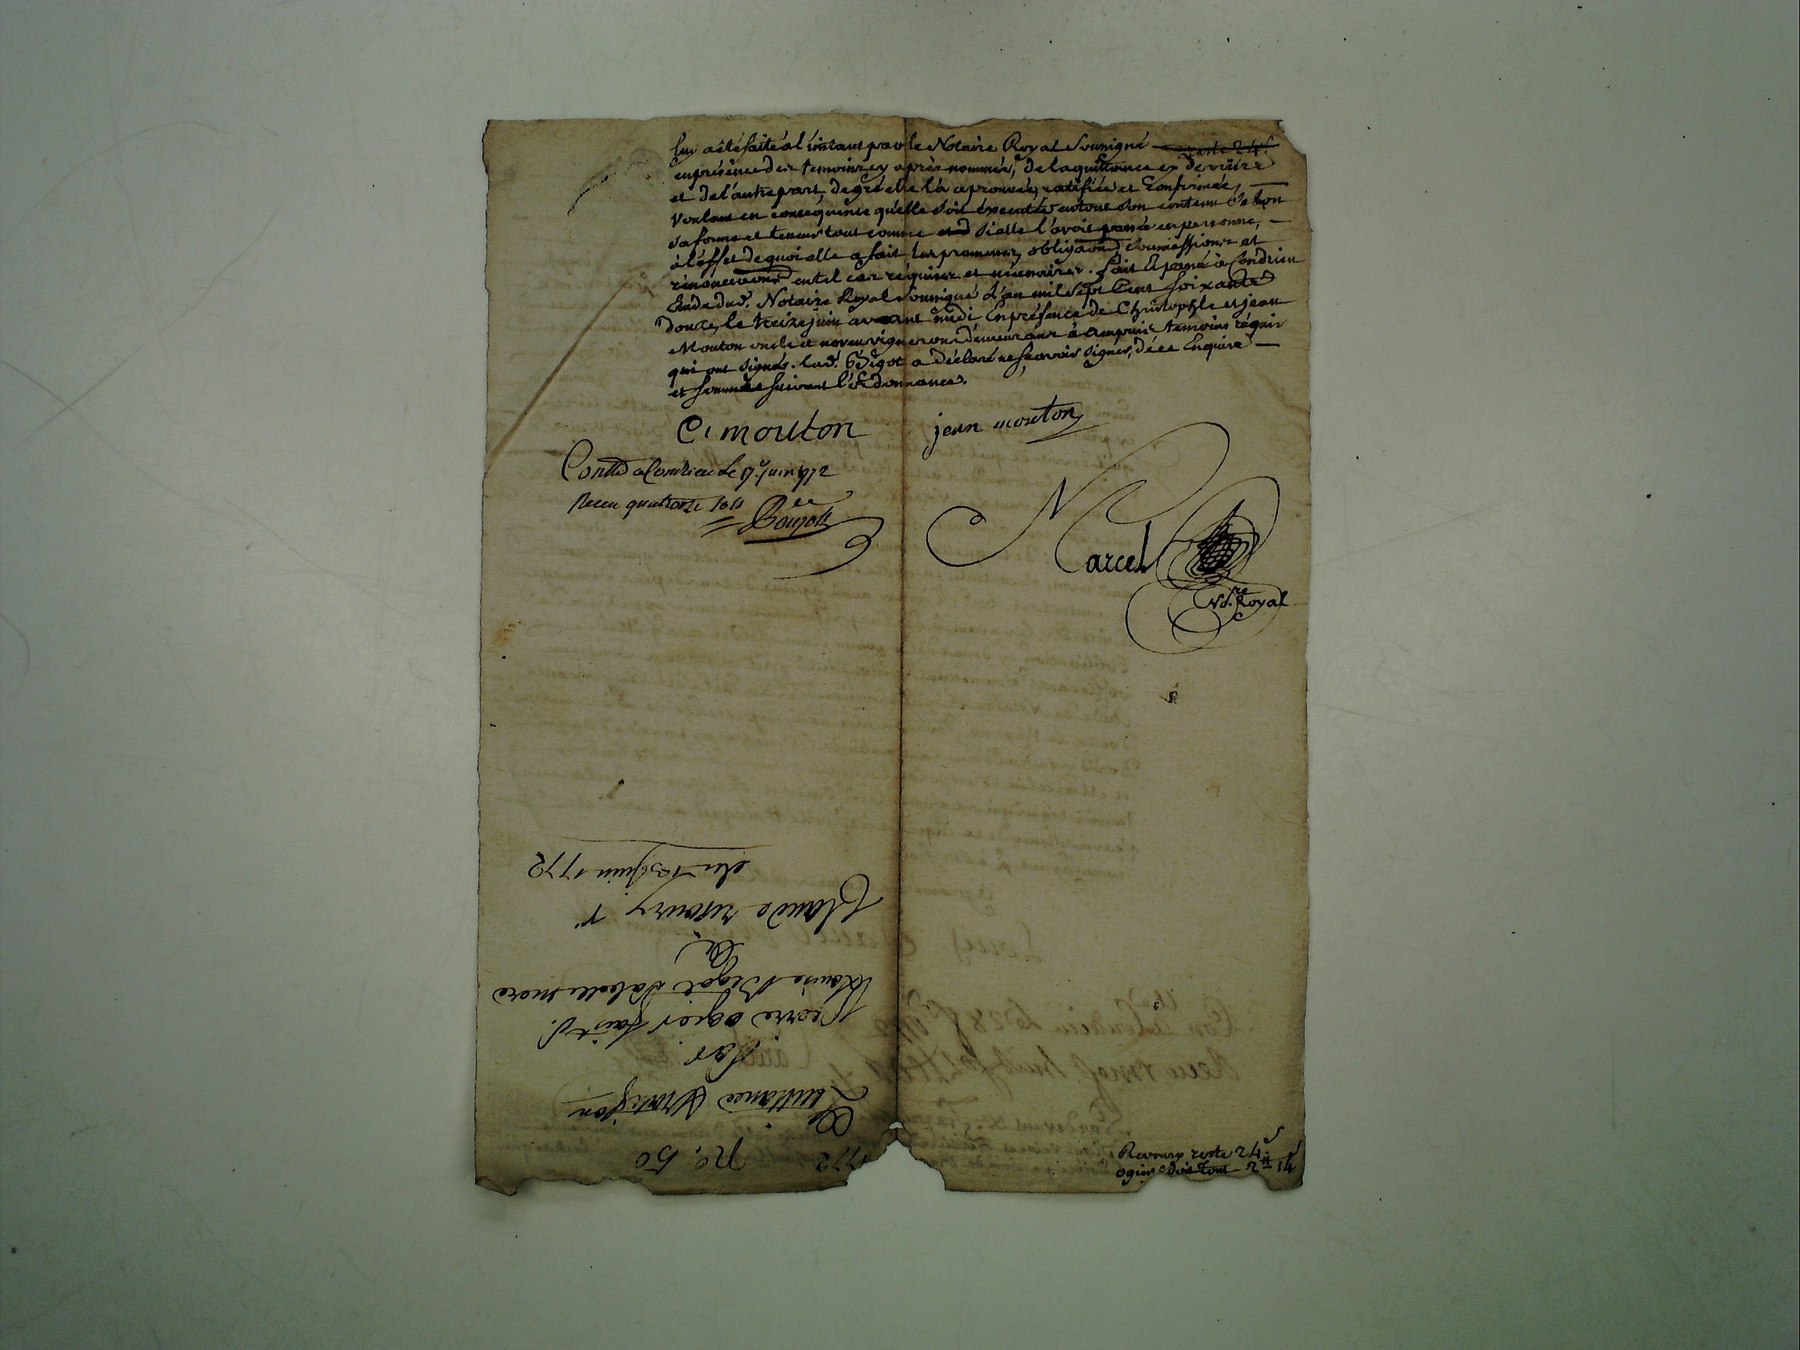 luy a été faite à l'instant par le Notaire Royal Soussigné reste 24ˢ
en présence des temoins cy après nommés, de la quittance cy derrière
et de l'autre part, de gré elle l'a aprouvée, ratifiée et Confirmée,
Voulant en conséquence quelle soit éxecutée en tout son contenu selon
sa forme et teneur tout comme si elle l'avoit passée en personne,
à l'éffet de quoi elle a fait les promesses, obligations soumissions et
rénonciations en tel cas réquises et nécessaires. fait Et passé à Condrieu
Etude dud. Notaire Royal Soussigné L'an mil sept Cent soixante
douze, le treize juin avant midi En présence de Christophle et jean
Mouton oncle et neveu vignerons demeurant à Ampuis temoins réquis
qui ont signés. lad. Bigot a déclaré ne sçavoir signer, de ce Enquise
et sommée suivant l'ordonnance.
C. mouton jean mouton
Contllé a Condrieu Le 17 juin 1772
Receu quatorze sols
Marcel
No.re Royal
Revoury reste 24ˢ
ogier doit tout 2ᵗᵗ 14ˢ
1772 No. 50
Quittance & Ratif.on
Par
Pierre ogier fait d.
Louise Bigot sa belle mere
A
Claude revoury
du 13 juin 1772